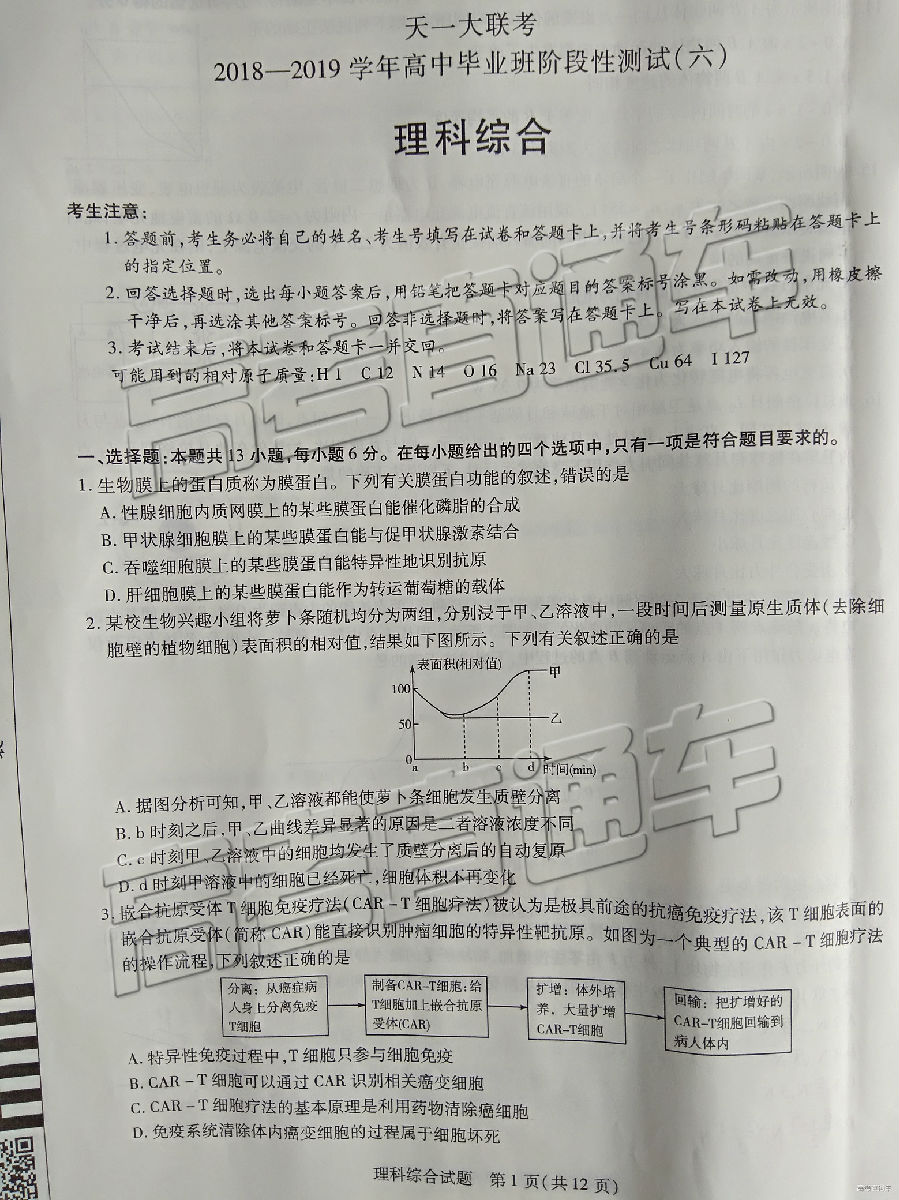 天一大联考
2018—2019学年高中毕业班阶段性测试(六)
理科综合
考生注意:
1.答题前,考生务必将自己的姓名、考生号填写在试卷和答题卡上,并将考生号条形码粘贴在答题卡上
的指定位置。
2.回答选择题时,选出每小题答案后,用铅笔把答题卡对应题目的答案标号涂黑。如需改动,用橡皮擦
干净后,再选涂其他答案标号。回答非选择题时,将答案写在答题卡上。写在本试卷上无效。
3.考试结束后,将本试卷和答题卡一并交回。
可能用到的相对原子质量:H 1 C 12 N 14 O 16 Na 23 Cl 35.5 Cu 64 I 127
一、选择题:本题共13小题,每小题6分。在每小题给出的四个选项中,只有一项是符合题目要求的。
1.生物膜上的蛋白质称为膜蛋白。下列有关膜蛋白功能的叙述,错误的是
A.性腺细胞内质网膜上的某些膜蛋白能催化磷脂的合成
B.甲状腺细胞膜上的某些膜蛋白能与促甲状腺激素结合
C.吞噬细胞膜上的某些膜蛋白能特异性地识别抗原
D.肝细胞膜上的某些膜蛋白能作为转运葡萄糖的载体
2.某校生物兴趣小组将萝卜条随机均分为两组,分别浸于甲、乙溶液中,一段时间后测量原生质体(去除细
胞壁的植物细胞)表面积的相对值,结果如下图所示。下列有关叙述正确的是
表面积(相对值)
甲
100
乙
50
0
a b c d 时间(min)
A.据图分析可知,甲、乙溶液都能使萝卜条细胞发生质壁分离
B.b时刻之后,甲、乙曲线差异显著的原因是二者溶液浓度不同
C.c时刻甲、乙溶液中的细胞均发生了质壁分离后的自动复原
D.d时刻甲溶液中的细胞已经死亡,细胞体积不再变化
3.嵌合抗原受体T细胞免疫疗法(CAR-T细胞疗法)被认为是极具前途的抗癌免疫疗法,该T细胞表面的
嵌合抗原受体(简称CAR)能直接识别肿瘤细胞的特异性靶抗原。如图为一个典型的CAR-T细胞疗法
的操作流程,下列叙述正确的是
分离:从癌症病
人身上分离免疫
T细胞
制备CAR-T细胞:给
T细胞加上嵌合抗原
受体(CAR)
扩增:体外培
养,大量扩增
CAR-T细胞
回输:把扩增好的
CAR-T细胞回输到
病人体内
A.特异性免疫过程中,T细胞只参与细胞免疫
B.CAR-T细胞可以通过CAR识别相关癌变细胞
C.CAR-T细胞疗法的基本原理是利用药物清除癌细胞
D.免疫系统清除体内癌变细胞的过程属于细胞坏死
理科综合试题 第1页(共12页)
高考直通车
高考直通车